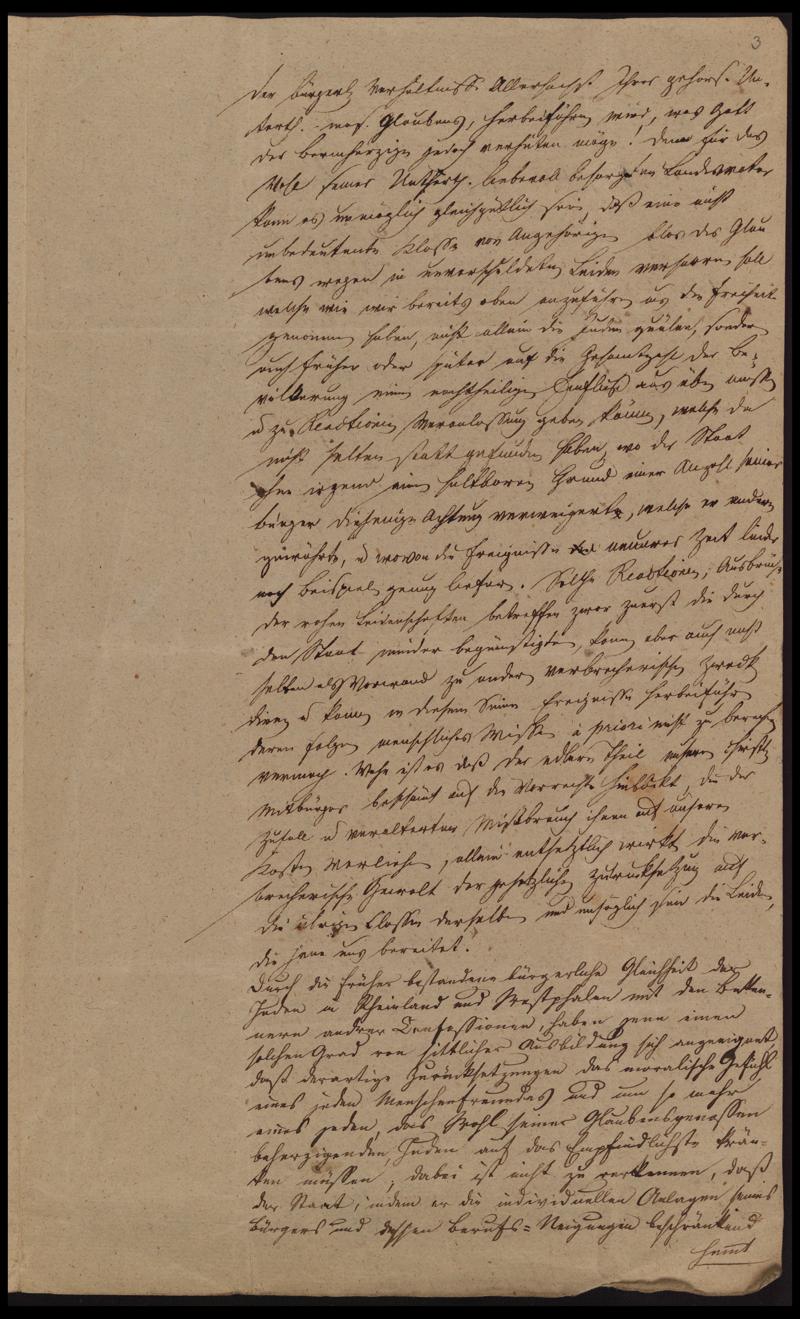 3
der bürgerl. Verhältnisse Allerhöchst Ihrer gehors. Un-
terth. mos. Glaubens, herbeiführen wird, was Gott
der barmherzige jedoch verhüten möge! Denn für das
Wohl seiner Unterth. liebevoll besorgten Landesvater
kann es unmöglich gleichgültig sein, daß eine nicht
unbedeutende Klasse von Angehörigen blos des Glau
bens wegen in unverschuldeten Leiden verharren soll
welche wie wir bereits oben anzuführen uns die Freiheit
genommen haben, nicht allein die Juden quälen, sondern
auch früher oder später auf die Gesamtzahl der Be-
völkerung einen nachtheiligen Einfluß aus üben müssen
u zu Reactionen Veranlassung geben können, welche da
nicht selten statt gefunden haben, wo der Staat
ohne irgend einen haltbaren Grund einer Anzahl seiner
bürger diejenige Achtung verweigerte, welche er andern
gewährte, u wovon die Ereignisse neuerer Zeit leider
noch Beispiele genug liefern. Solche Reactionen, Ausbrüche
der rohen Leidenschaften betreffen zwar zuerst die durch
den Staat minder begünstigten, kann aber auch nicht
selten als Vorwand zu andern verbrecherischen Zweck
dienen u kann in diesem Sinne Ereignisse herbeiführen
deren Folgen menschliches Wissen à priori nicht zu berechnen
vermag. Wahr ist es daß der edlere Theil unserer christl.
Mitbürger beschämt auf die Vorrechte hinblickt, die der
Zufall u veralterter Mißbrauch ihnen auf unsere
Kosten verliehen, allein entsetzlich wirkt die ver-
brecherische Gewalt der gesetzlichen Zurücksetzung auf
die übrigen Classen derselben und unsäglich sind die Leiden,
die jene uns bereitet.
Durch die früher bestandene bürgerliche Gleichheit der
Juden in Rheinland und Westphalen mit den Beken-
nern andrer Confessionen, haben jene einen
solchen Grad von sittlicher Ausbildung sich angeeignet,
daß derartige Zurücksetzungen das moralische Gefühl
eines jeden Menschenfreundes und um so mehr
eines jeden, das Wohl seiner Glaubensgenossen
beherzigenden, Juden auf das Empfindlichste krän-
ken müssen; dabei ist nicht zu verkennen, daß
der Staat, indem er die individuellen Anlagen seines
Bürgers und dessen Berufs-Neigungen beschränkend
hemt